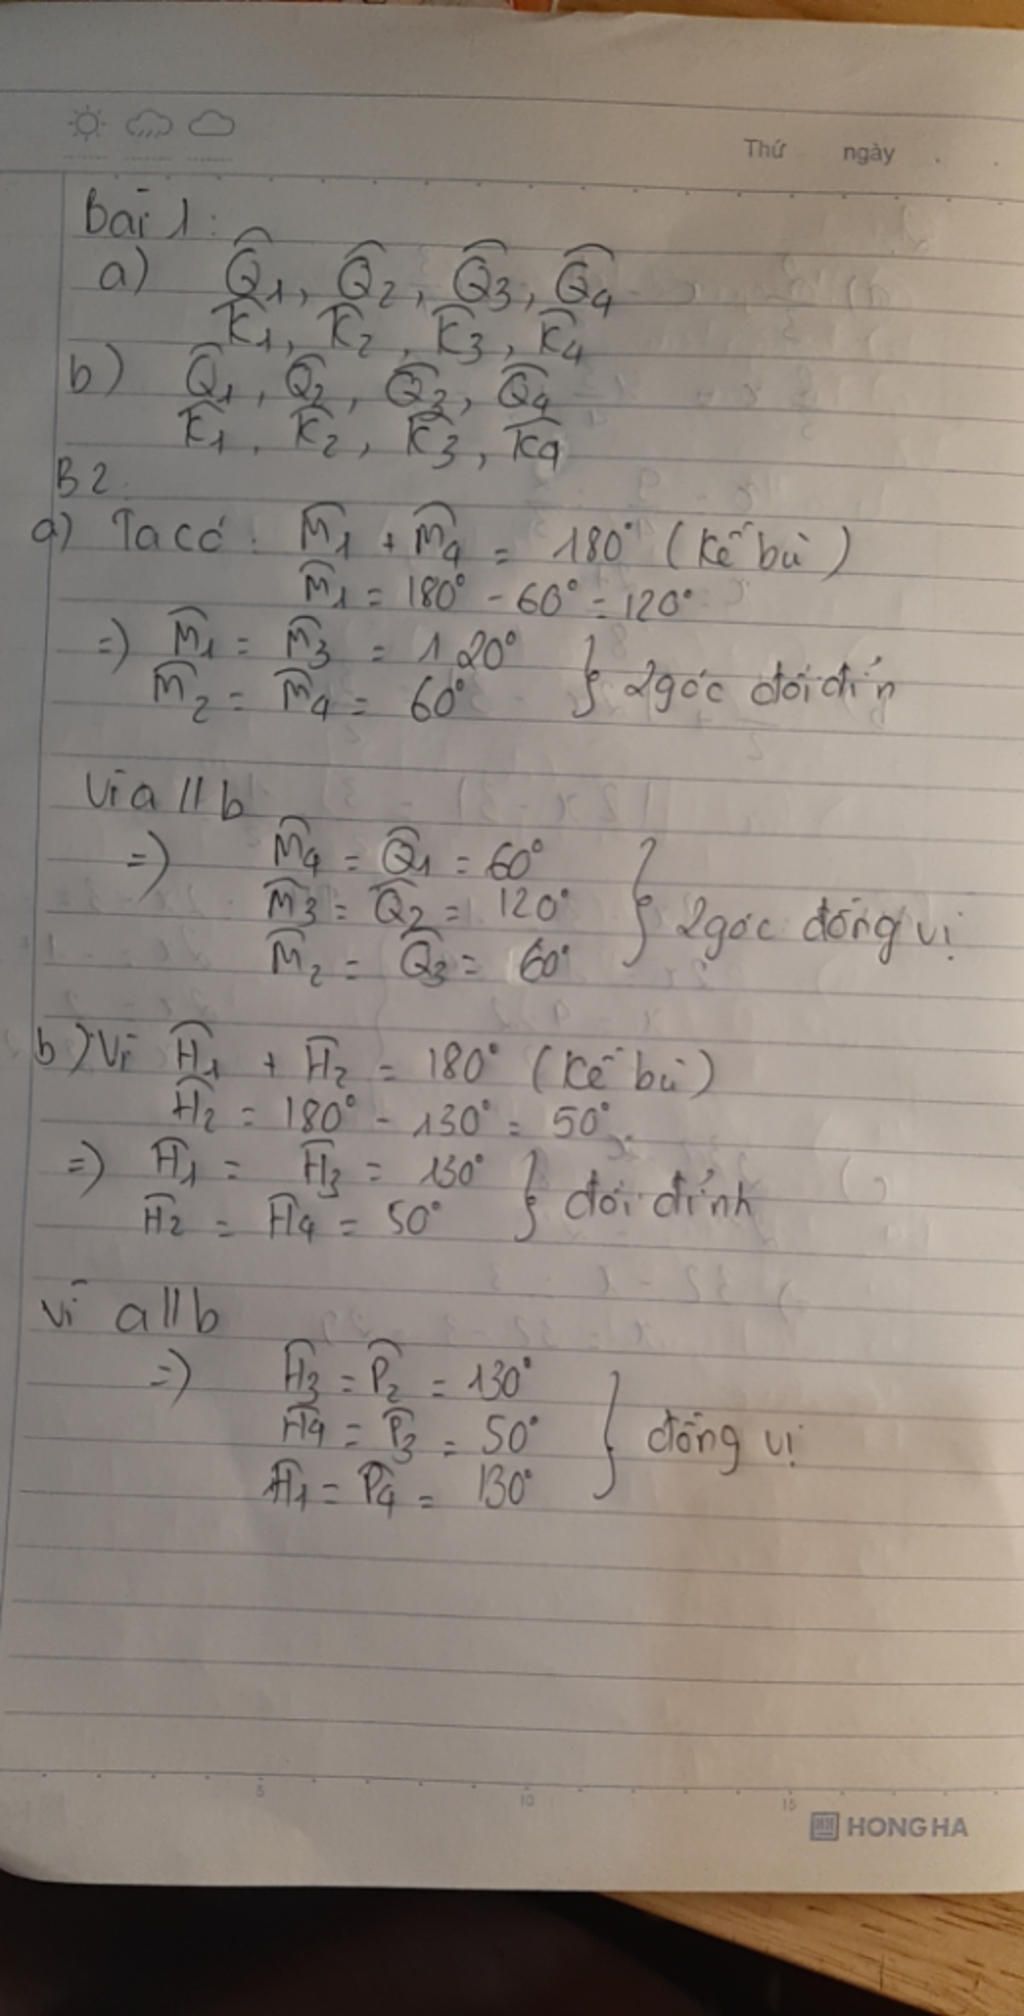 Thứ ngày
Bài 1:
a) Q̂1, Q̂2, Q̂3, Q̂4
K̂1, K̂2, K̂3, K̂4
b) Q̂1, Q̂2, Q̂3, Q̂4
K̂1, K̂2, K̂3, K̂4
B2.
a) Ta có: M̂1 + M̂4 = 180° (kề bù)
M̂1 = 180° - 60° = 120°
=> M̂1 = M̂3 = 120°
M̂2 = M̂4 = 60° } 2 góc đối đỉn
Vì a // b
=> M̂4 = Q̂1 = 60°
M̂3 = Q̂2 = 120° } 2 góc đồng vị
M̂2 = Q̂3 = 60°
b) Vì Ĥ1 + Ĥ2 = 180° (kề bù)
Ĥ2 = 180° - 130° = 50°
=> Ĥ1 = Ĥ3 = 130°
Ĥ2 = Ĥ4 = 50° } đối đỉnh
Vì a // b
=> Ĥ3 = P̂2 = 130°
Ĥ4 = P̂3 = 50° } đồng vị
Ĥ1 = P̂4 = 130°
5 10 15
HONG HA